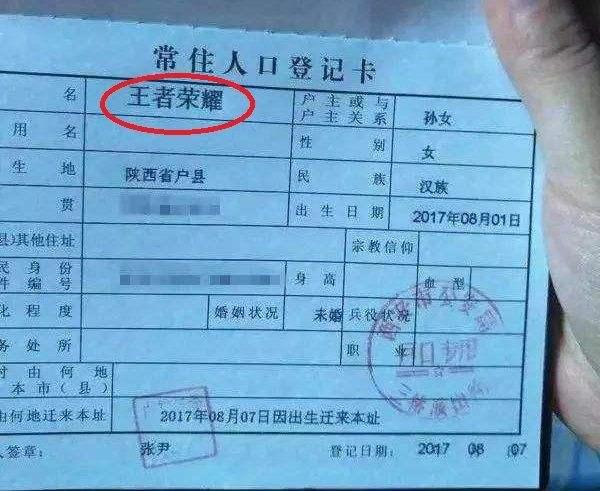 常住人口登记卡
名 王者荣耀 户主或与户主关系 孙女
用名 性别 女
生地 陕西省户县 民族 汉族
贯 出生日期 2017年08月01日
县)其他住址 宗教信仰
民身份件编号 身高 血型
化程度 婚姻状况 未婚 兵役状况
务处所 职业
时由何地本市(县)
由何地迁来本址 2017年08月07日因出生迁来本址
人签章: 张尹 登记日期: 2017 08 07